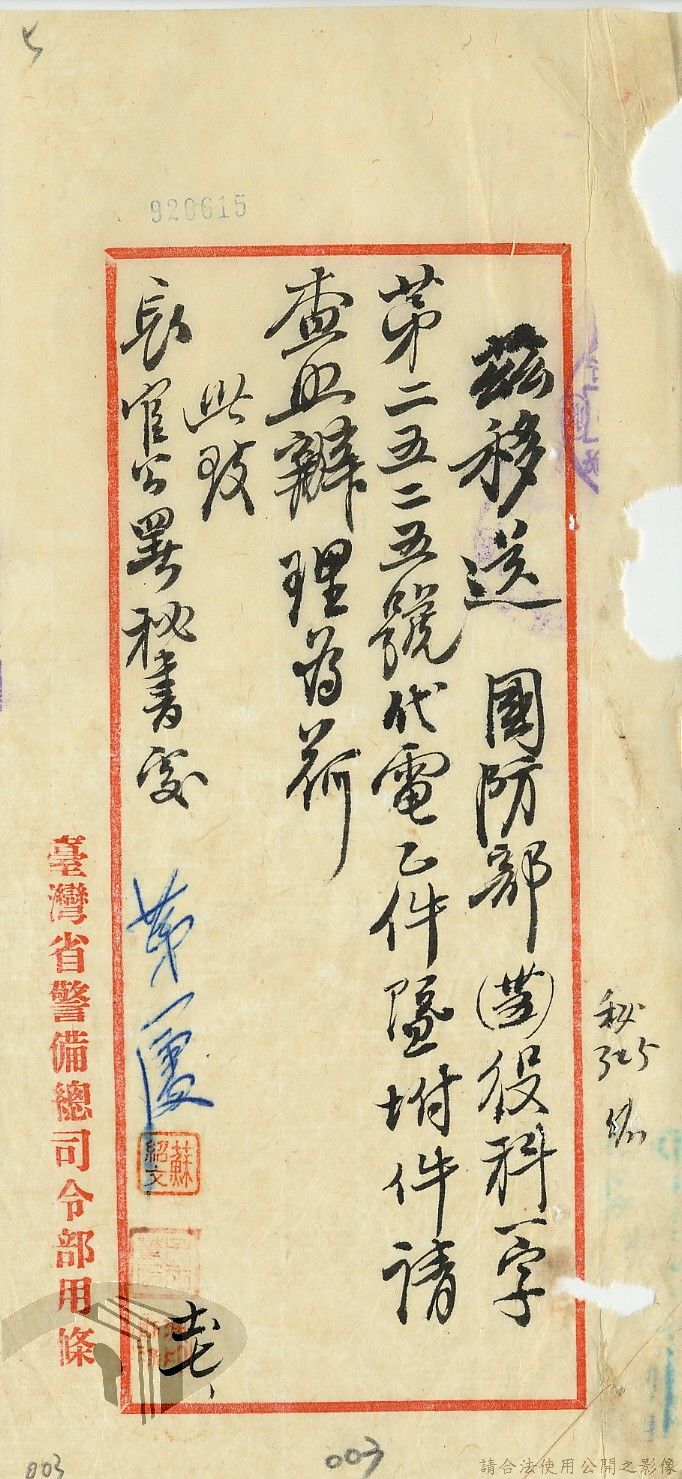 920615
茲移送 國防部(曹)役科一字
第二五二五號代電乙件暨坿件請
查照辦理為荷
此致
長官公署秘書處
第一處
蘇紹文
臺灣省警備總司令部用條
003
003
請合法使用公開之影像